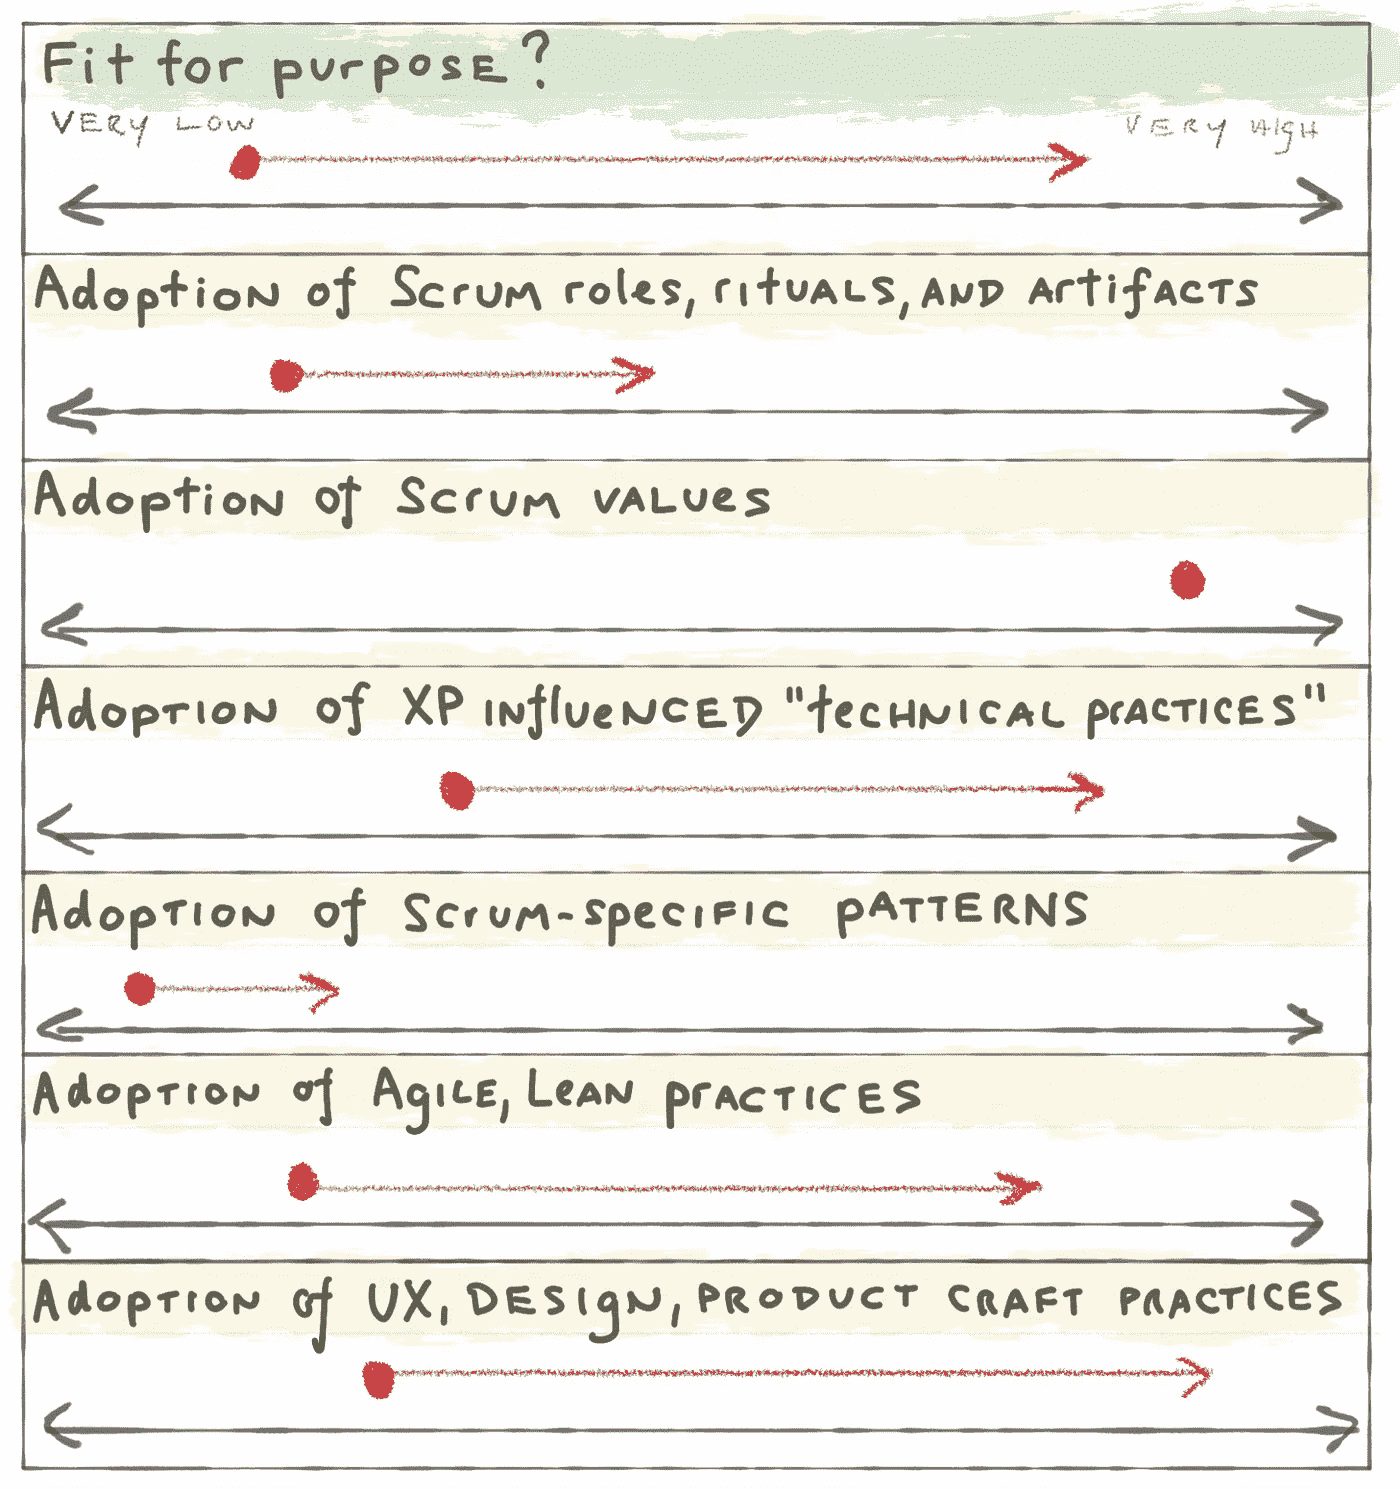 Fit for purpose?
VERY LOW
VERY HIGH
Adoption of Scrum roles, rituals, and artifacts
Adoption of Scrum values
Adoption of XP influenced "technical practices"
Adoption of Scrum-specific patterns
Adoption of Agile, Lean practices
Adoption of UX, Design, product craft practices